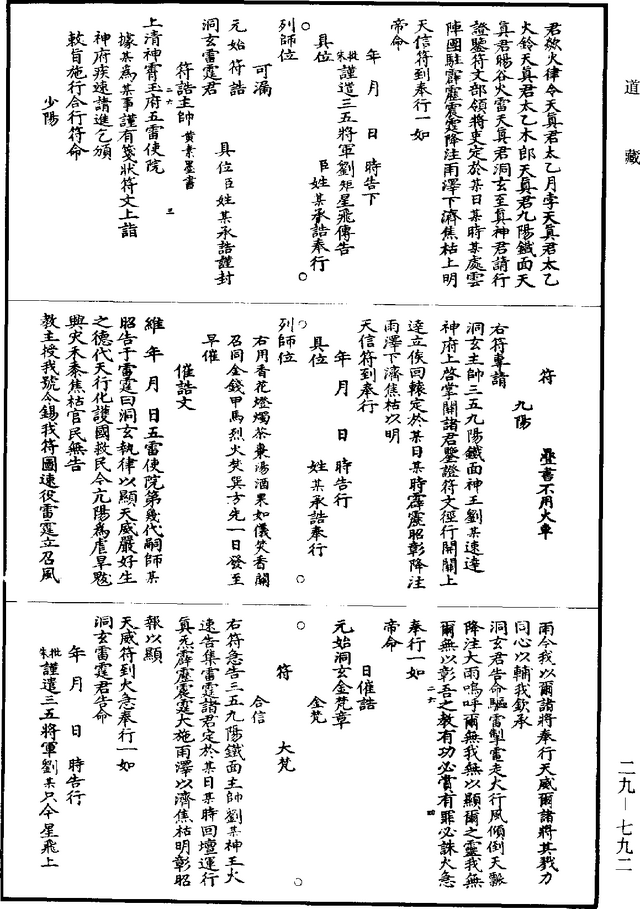 道藏
君欻火律令天真君太乙月孛天真君太乙
火鈴天真君太乙木郎天真君九陽鐵面天
真君暘谷火雷天真君洞玄至真神君請行
證鑒符文部領將吏定於某日某時某處雲
陣團駐霹靂震霆降注雨澤下濟焦枯上明
天信符到奉行一如
帝命
年 月 日 時告下
朱批謹遣三五將軍劉矩星飛傳告
具位 臣姓某承誥奉行
○ ○
列師位
可漏
元始符誥
具位臣姓某承誥謹封
洞玄雷霆君
符誥主帥 黃素墨書
二六 三
上清神霄玉府五雷使院
據某為某事謹有箋狀符文上詣
神府疾速請進乞頒
敕旨施行合行符命
少陽
符
九陽 疊書不用火車
右符專請
洞玄主帥三五九陽鐵面神王劉某速達
神府上啓掌開諸君鑒證符文徑行開闢上
達立俟回轅定於某日某時霹靂昭彰降注
雨澤下濟焦枯以明
天信符到奉行
年 月 日 時告行
具位 姓某承誥奉行
○ ○
列師位
右用香花燈燭茶棗湯酒果如儀焚香關
召同金錢甲馬烈火焚巽方先一日發至
早催
催誥文
維 年 月 日五雷使院第幾代嗣師某
昭告于雷霆曰洞玄執律以顯天威嚴好生
之德代天行化護國救民今亢陽為虐旱魃
興災禾黍焦枯官民無告
教主授我號令錫我符圖速役雷霆立召風
雨今我以爾諸將奉行天威爾諸將其戮力
同心以輔我欽承
洞玄君告命驅雷掣電走火行風傾倒天瓢
降注大雨嗚呼爾無我無以顯爾之靈我無
爾無以彰吾之教有功必賞有罪必誅火急
奉行一如
二六 四
帝命
日催誥
元始洞玄金梵章
金梵
○ 符 大梵 ○
合信
右符急告三五九陽鐵面主帥劉某神王火
速告集雷霆諸君定於某日某時回壇運行
真炁霹靂震霆大施雨澤以濟焦枯明彰昭
報以顯
天威符到火急奉行一如
洞玄雷霆君告命
年 月 日 時告行
朱批謹遣三五將軍劉某只今星飛上
二九－七九二